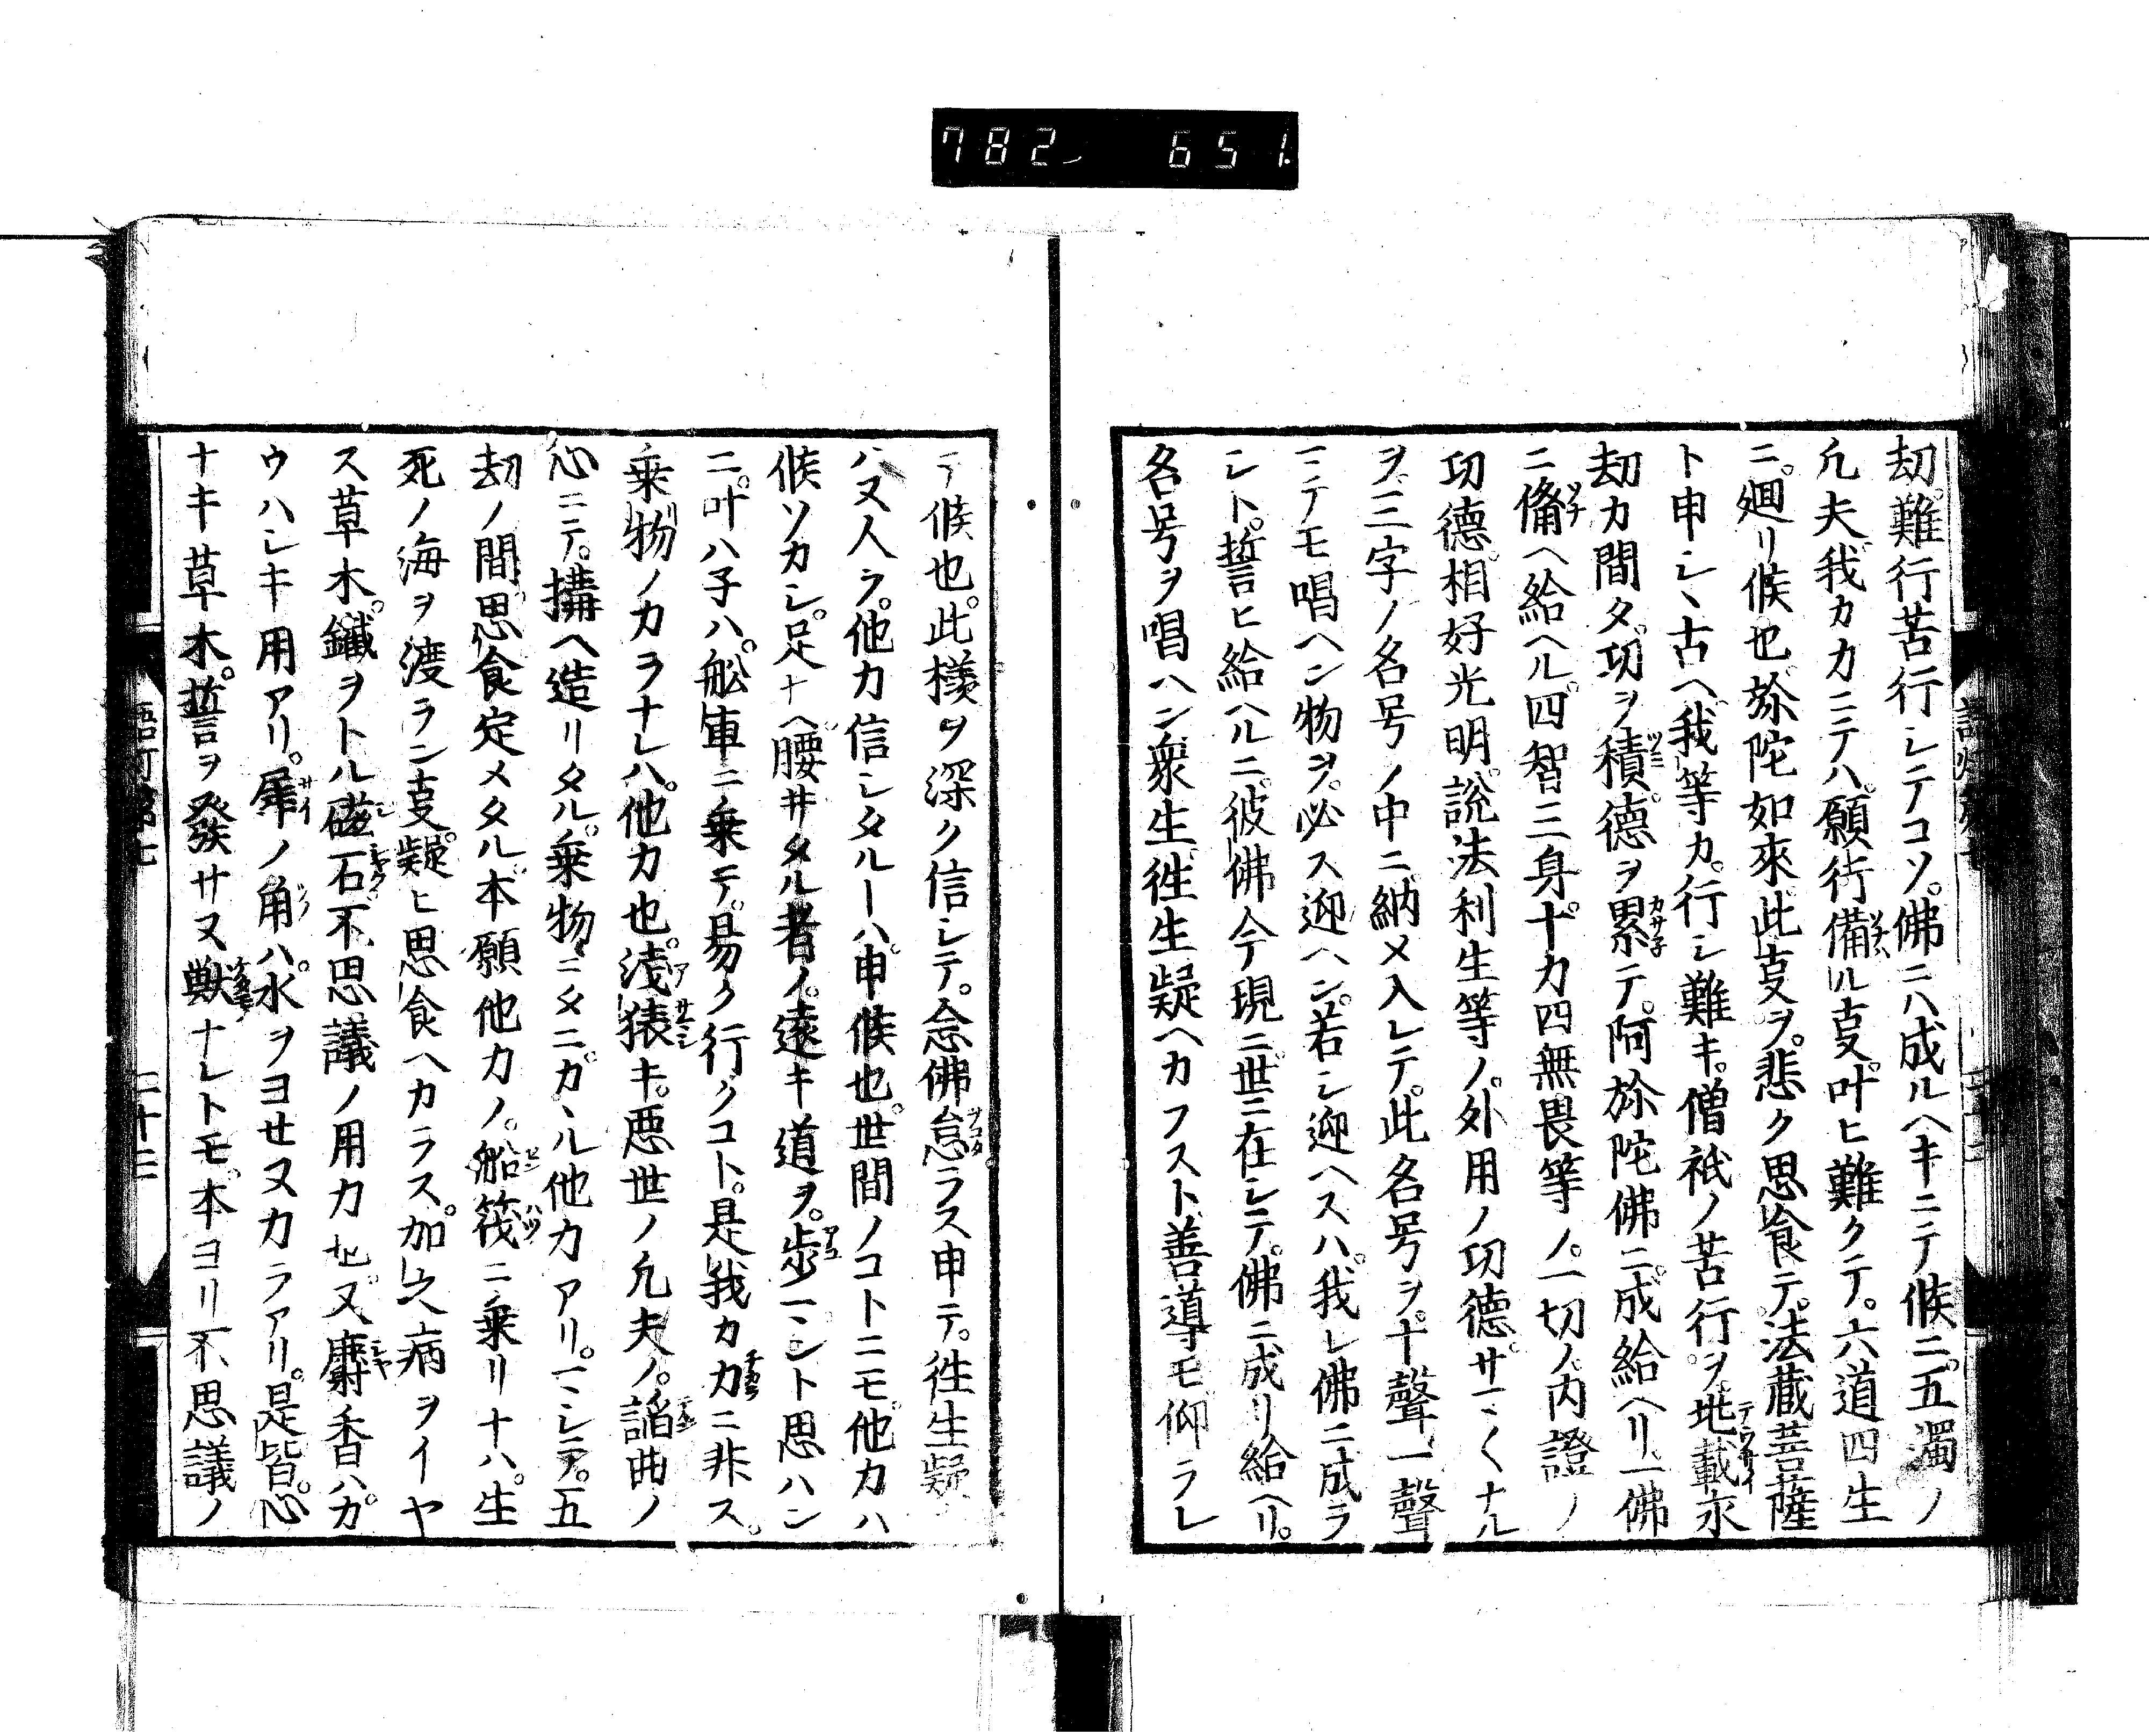 782 651.
劫。難行苦行シテコソ。佛ニハ成ルヘキニテ候ニ。五濁ノ
凢夫我カカニテハ。願行備ル叓。叶ヒ難クテ。六道四生
ニ。廻リ候也。旀陀如來此叓ヲ。悲ク思食テ。法蔵菩薩
ト申シヽ古ヘ。我等カ。行シ難キ。僧祇ノ苦行ヲ。兆載永
劫カ間タ。功ヲ積。德ヲ累テ。阿旀陀佛ニ成給ヘリ。一佛
ニ備ヘ給ヘル。四智三身。十力四無畏等ノ。一切ノ内證ノ
功德。相好光明。說法利生等ノ。外用ノ功德。サマ〱ナル
ヲ。三字ノ名号ノ中ニ納メ入レテ。此名号ヲ。十聲一聲
マテモ唱ヘン物ヲ。必ス迎ヘン。若シ迎ヘスハ。我レ佛ニ成ラ
シト。誓ヒ給ヘルニ。彼佛今現ニ世ニ在シテ。佛ニ成リ給ヘリ。
名号ヲ唱ヘン衆生徃生疑ヘカラスト、善導モ仰ラレ
テ候也。此様ヲ深ク信シテ。念佛怠ラス申テ。徃生疑
ハヌ人ラ。他力信シタルトハ。申候也。世間ノコトニモ。他力ハ
候ソカシ。足ナヘ。腰井タル者ノ。遠キ道ヲ。歩マント思ハン
ニ。叶ハ子ハ。舩車ニ乗テ。易ク行クコト。是我カ力ニ非ス。
乗物ノカラナレハ。他力也。浅猿キ。悪世ノ凢夫ノ。諂曲ノ
心ニテ。搆ヘ造リタル。乗物ニタニ。カヽル他力アリ。マシテ。五
劫ノ間。思食定メタル。本願他力ノ。船筏ニ乗リナハ。生
死ノ海ヲ渡ラン叓。疑ヒ思食ヘカラス。加之病ヲイヤ
ス草木。鐵ヲトル磁石。不思議ノ用力也。又麝香ハ。カ
ウハシキ用アリ。犀ノ角ハ。水ヲヨセヌカラアリ。是皆。心
ナキ草木。誓ヲ發サヌ獣ナレトモ。本ヨリ不思議ノ
二十三